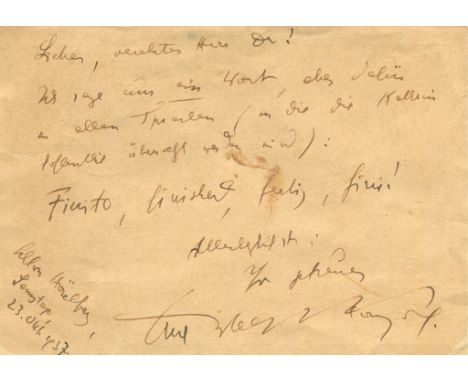 Lieber, verehrter Herr Dr!
Ich sage nur ein Wort, aber dafür
in allen Sprachen (in die die Kathrin
übersetzt werden wird):
Finito, finished, fertig, fini!
Allerherzlichst:
Ihr getreuer
Samstag,
23. Okt. 1937.